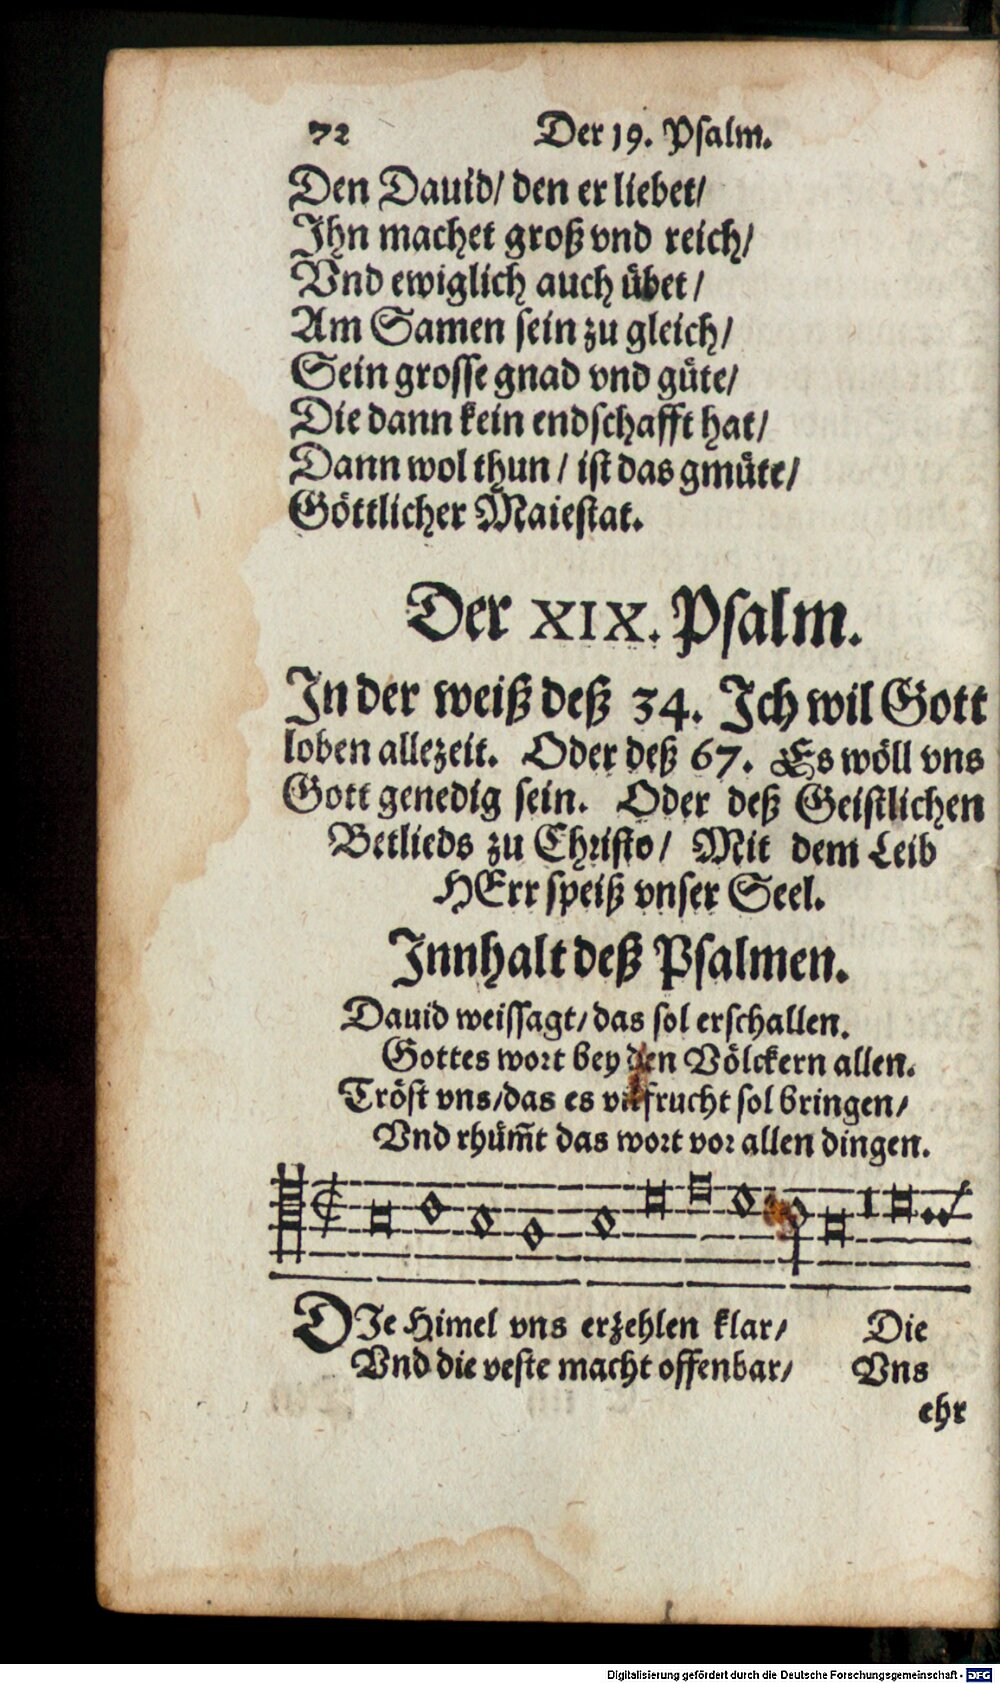 72 Der 19. Psalm.
Den Dauid/ den er liebet/
Ihn machet groß vnd reich/
Vnd ewiglich auch übet/
Am Samen sein zu gleich/
Sein grosse gnad vnd güte/
Die dann kein endschafft hat/
Dann wol thun/ ist das gmüte/
Göttlicher Maiestat.
Der XIX. Psalm.
In der weiß deß 34. Ich wil Gott
loben allezeit. Oder deß 67. Es wöll vns
Gott genedig sein. Oder deß Geistlichen
Betlieds zu Christo/ Mit dem Leib
HErr speiß vnser Seel.
Innhalt deß Psalmen.
Dauid weissagt/ das sol erschallen.
Gottes wort bey den Völckern allen.
Tröst vns/das es vil frucht sol bringen/
Vnd rhüm̃t das wort vor allen dingen.
DIe Himel vns erzehlen klar/ Die
Vnd die veste macht offenbar/ Vns
ehr
Digitalisierung gefördert durch die Deutsche Forschungsgemeinschaft - DFG